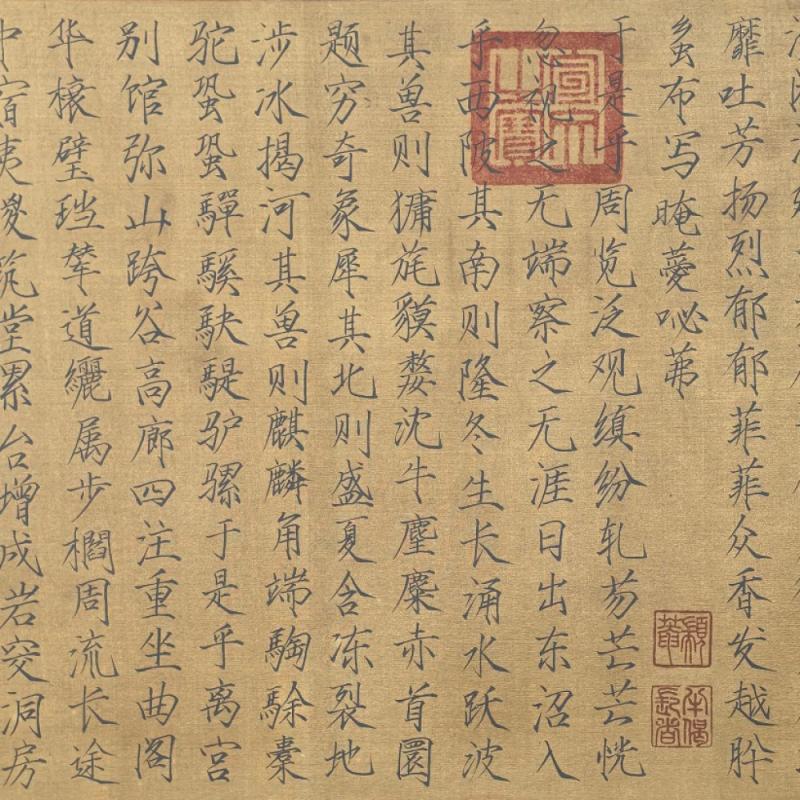 靡吐芳扬烈郁郁菲菲众香发越肸
蚃布写晻薆咇茀
于是乎周览泛观缜纷轧芴芒芒恍
忽视之无端察之无涯日出东沼入
乎西陂其南则隆冬生长涌水跃波
其兽则㺎旄貘嫠沈牛麈麋赤首圜
题穷奇象犀其北则盛夏含冻裂地
涉冰揭河其兽则麒麟角端騊駼橐
驼蛩蛩驒騱駃騠驴骡于是乎离宫
别馆弥山跨谷高廊四注重坐曲阁
华榱璧珰辇道纚属步櫩周流长途
中宿夷嵕筑堂累台增成岩突洞房